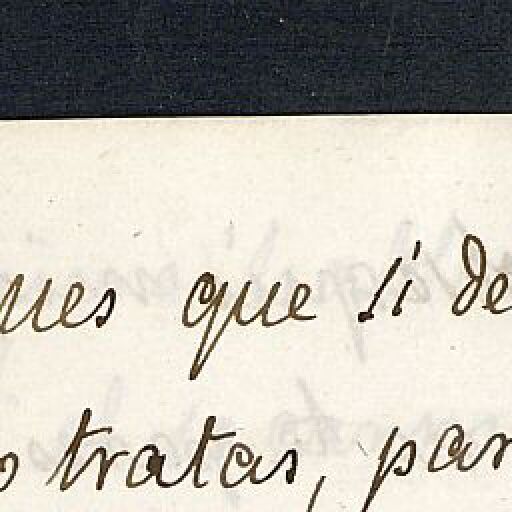 ques que si de
os tratas, par